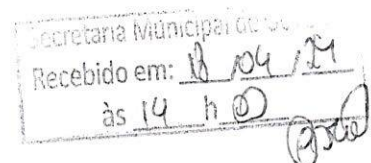 Secretaria Municipal de
Recebido em: 18 / 04 / 24
às 14 h